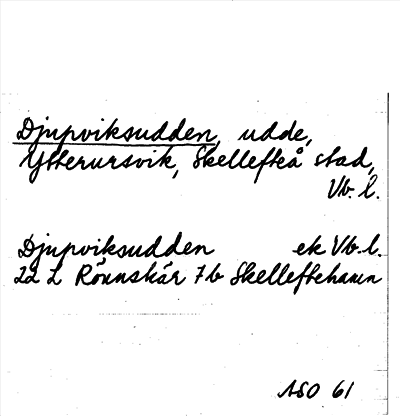 Djupviksudden, udde,
Ytterursvik, Skellefteå stad,
Vb. l.
Djupviksudden ek Vb. l.
22 L Rönnskär 7b Skelleftehamn
ASO 61